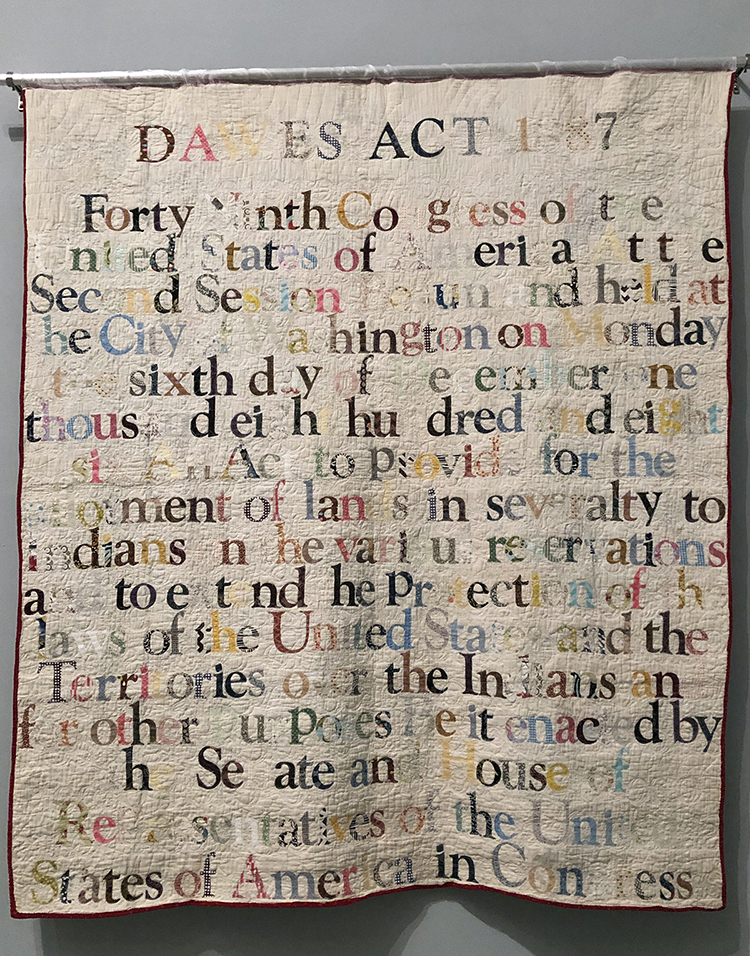 DAWES ACT 1887
Forty Ninth Congress of the
United States of America At the
Second Session Begun and held at
the City of Washington on Monday
the sixth day of December one
thousand eight hundred and eight
six An Act to provide for the
allotment of lands in severalty to
Indians on the various reservations
and to extend the Protection of the
laws of the United States and the
Territories over the Indians an
for other purposes Be it enacted by
the Senate and House of
Representatives of the United
States of America in Congress